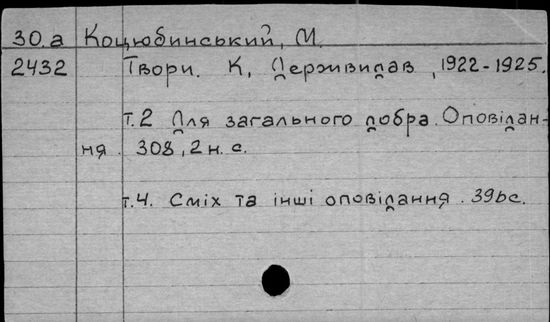 30.а Коцюбинський, М.
2432 Твори. К, Держвидав, 1922-1925.
т.2 Для загального добра. Оповідан-
ня. 308, 2 н. с.
т.4. Сміх та інші оповідання. 396с.